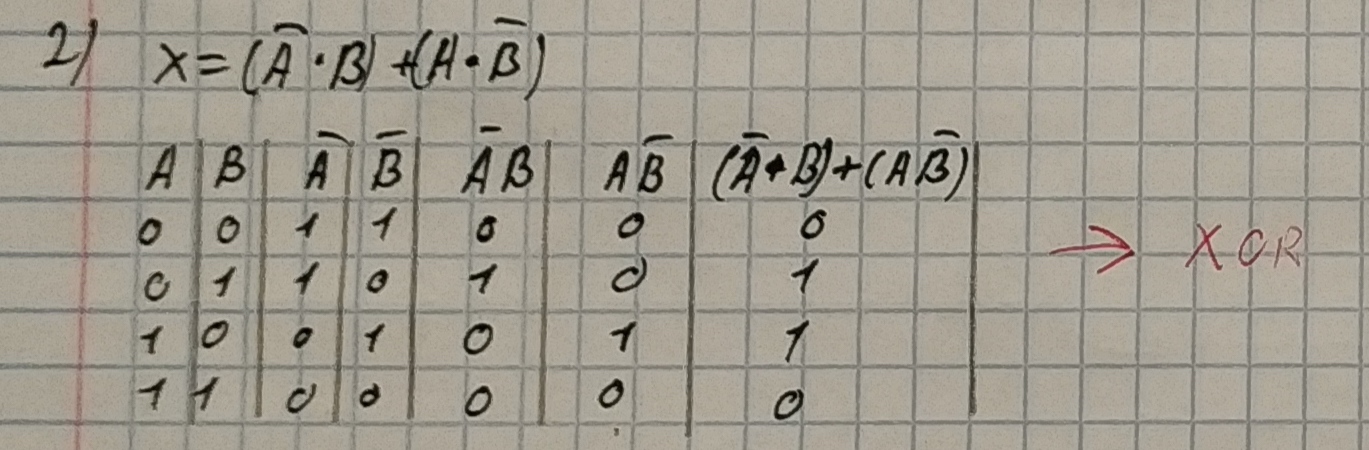 2) X = (A̅ · B) + (A · B̅)
A | B | A̅ | B̅ | A̅B | AB̅ | (A̅ · B) + (AB̅) |
0 0 1 1 0 0 0
0 1 1 0 1 0 1 → XOR
1 0 0 1 0 1 1
1 1 0 0 0 0 0